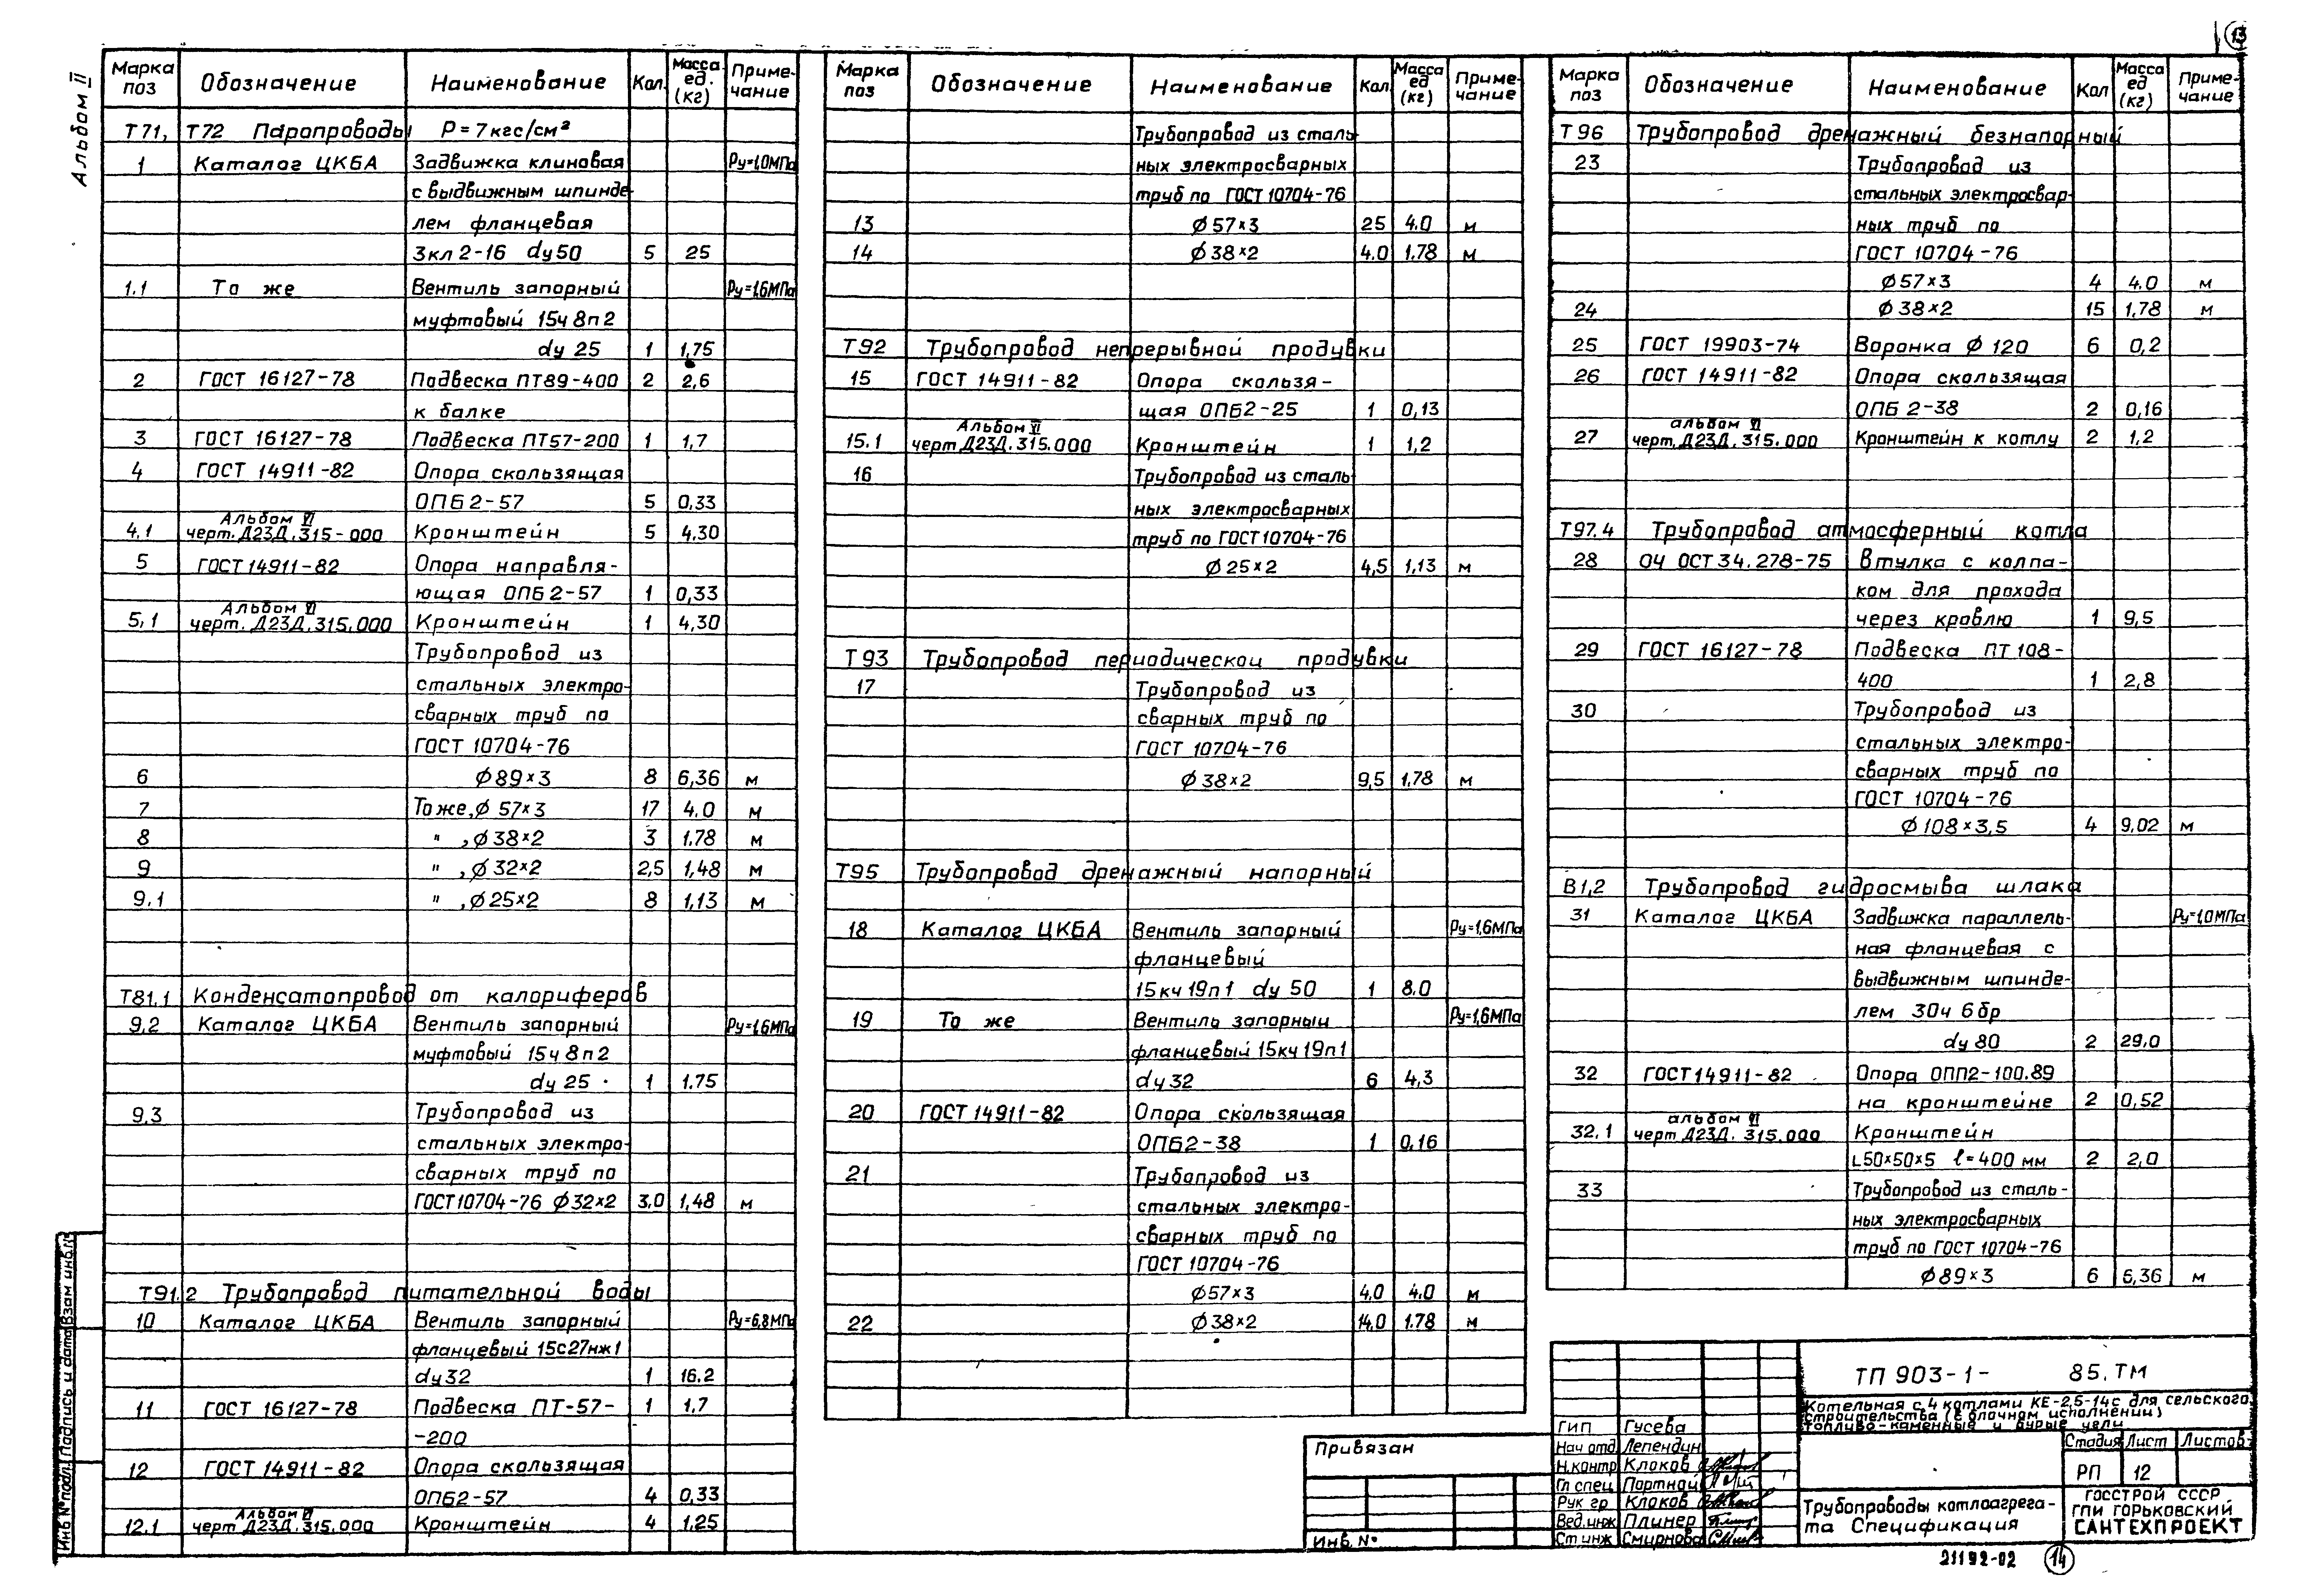 13
Альбом III
Марка поз Обозначение Наименование Кол. Масса ед. (кг) Приме-чание
Т71, Т72 Паропроводы Р=7кгс/см²
1 Каталог ЦКБА Задвижка клиновая Ру=1,0МПа
с выдвижным шпинде-
лем фланцевая
3кл 2-16 dу50 5 25
1.1 То же Вентиль запорный Ру=1,6МПа
муфтовый 15ч 8п2
dу 25 1 1,75
2 ГОСТ 16127-78 Подвеска ПТ89-400 2 2,6
к балке
3 ГОСТ 16127-78 Подвеска ПТ57-200 1 1,7
4 ГОСТ 14911-82 Опора скользящая
ОПБ2-57 5 0,33
Альбом VI
4.1 черт. Д23Д.315-000 Кронштейн 5 4,30
5 ГОСТ 14911-82 Опора направля-
ющая ОПБ2-57 1 0,33
Альбом VI
5,1 черт. Д23Д.315.000 Кронштейн 1 4,30
Трубопровод из
стальных электро-
сварных труб по
ГОСТ 10704-76
6 ∅89×3 8 6,36 м
7 То же, ∅ 57×3 17 4.0 м
8 " , ∅38×2 3 1.78 м
9 " , ∅32×2 2,5 1,48 м
9.1 " , ∅25×2 8 1,13 м
Т81.1 Конденсатопровод от калориферов
9.2 Каталог ЦКБА Вентиль запорный Ру=1,6МПа
муфтовый 15ч 8п2
dу 25 1 1.75
9.3 Трубопровод из
стальных электро-
сварных труб по
ГОСТ10704-76 ∅32×2 3,0 1,48 м
Т91.2 Трубопровод питательной воды
10 Каталог ЦКБА Вентиль запорный Ру=6,8МПа
фланцевый 15с27нж1
dу32 1 16.2
11 ГОСТ 16127-78 Подвеска ПТ-57- 1 1.7
-200
12 ГОСТ 14911-82 Опора скользящая
ОПБ2-57 4 0,33
Альбом VI
12.1 черт Д23Д.315.000 Кронштейн 4 1.25
Марка поз Обозначение Наименование Кол Масса ед (кг) Приме-чание
Трубопровод из сталь-
ных электросварных
труб по ГОСТ 10704-76
13 ∅57×3 25 4.0 м
14 ∅38×2 4.0 1.78 м
Т92 Трубопровод непрерывной продувки
15 ГОСТ 14911-82 Опора скользя-
щая ОПБ2-25 1 0,13
Альбом VI
15.1 черт Д23Д.315.000 Кронштейн 1 1,2
16 Трубопровод из сталь-
ных электросварных
труб по ГОСТ10704-76
∅25×2 4,5 1,13 м
Т93 Трубопровод периодической продувки
17 Трубопровод из
сварных труб по
ГОСТ 10704-76
∅38×2 9,5 1.78 м
Т95 Трубопровод дренажный напорный
18 Каталог ЦКБА Вентиль запорный Ру=1,6МПа
фланцевый
15кч19п1 dу 50 1 8.0
19 То же Вентиль запорный Ру=1,6МПа
фланцевый 15кч19п1
dу32 6 4,3
20 ГОСТ 14911-82 Опора скользящая
ОПБ2-38 1 0,16
21 Трубопровод из
стальных электро-
сварных труб по
ГОСТ 10704-76
∅57×3 4.0 4.0 м
22 ∅38×2 14.0 1.78 м
Марка поз Обозначение Наименование Кол Масса ед (кг) Приме-чание
Т96 Трубопровод дренажный безнапорный
23 Трубопровод из
стальных электросвар-
ных труб по
ГОСТ 10704-76
∅57×3 4 4.0 м
24 ∅38×2 15 1,78 м
25 ГОСТ 19903-74 Воронка ∅ 120 6 0,2
26 ГОСТ 14911-82 Опора скользящая
ОПБ 2-38 2 0,16
альбом VI
27 черт. Д23Д.315.000 Кронштейн к котлу 2 1,2
Т97.4 Трубопровод атмосферный котла
28 04 ОСТ 34.278-75 Втулка с колпа-
ком для прохода
через кровлю 1 9,5
29 ГОСТ 16127-78 Подвеска ПТ 108-
400 1 2,8
30 Трубопровод из
стальных электро-
сварных труб по
ГОСТ 10704-76
∅108×3,5 4 9,02 м
В1,2 Трубопровод гидросмыва шлака
31 Каталог ЦКБА Задвижка параллель- Ру=1,0МПа
ная фланцевая с
выдвижным шпинде-
лем 30ч 6бр
dу 80 2 29,0
32 ГОСТ14911-82 Опора ОПП2-100.89
на кронштейне 2 0,52
альбом VI
32.1 черт Д23Д.315.000 Кронштейн
L50×50×5 ℓ=400 мм 2 2,0
33 Трубопровод из сталь-
ных электросварных
труб по ГОСТ 10704-76
∅89×3 6 6,36 м
Инв.№подл. Подпись и дата Взам инв.№
Привязан
Инв. №
ГИП Гусева
Нач отд Лепендин
Н.контр Клоков
Гл спец Портной
Рук гр Клоков
Вед.инж Плинер
Ст инж Смирнова
ТП 903-1- 85.ТМ
Котельная с 4 котлами КЕ-2,5-14с для сельского
строительства (в блочном исполнении)
Топливо-каменные и бурые угли
Стадия Лист Листов
РП 12
Трубопроводы котлоагрега-
та Спецификация
ГОССТРОЙ СССР
ГПИ ГОРЬКОВСКИЙ
САНТЕХПРОЕКТ
21192-02 14